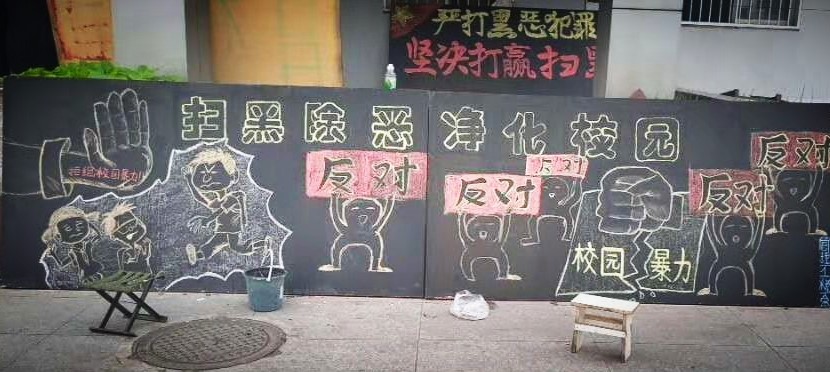 严打黑恶犯罪
坚决打赢扫
扫黑除恶净化校园
拒绝校园暴力!
反对
反对
反对
反对
反对
校园暴力